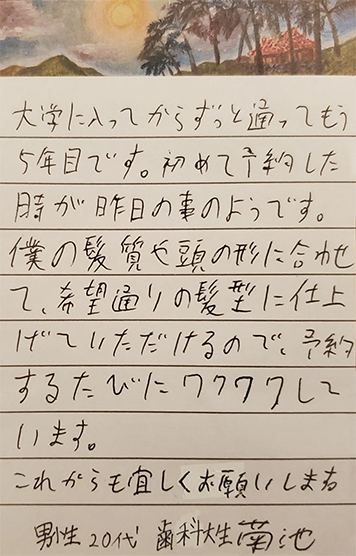 大学に入ってからずっと通ってもう
5年目です。初めて予約した
時が昨日の事のようです。
僕の髪質や頭の形に合わせ
て、希望通りの髪型に仕上
げていただけるので、予約
するたびにワクワクして
います。
これからも宜しくお願いします
男性20代 歯科大生 菊池